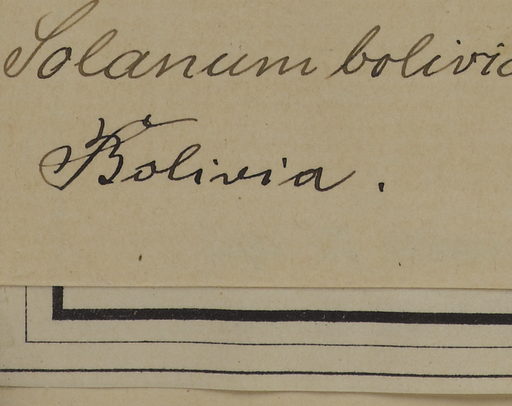 Solanum bolivia
Bolivia.